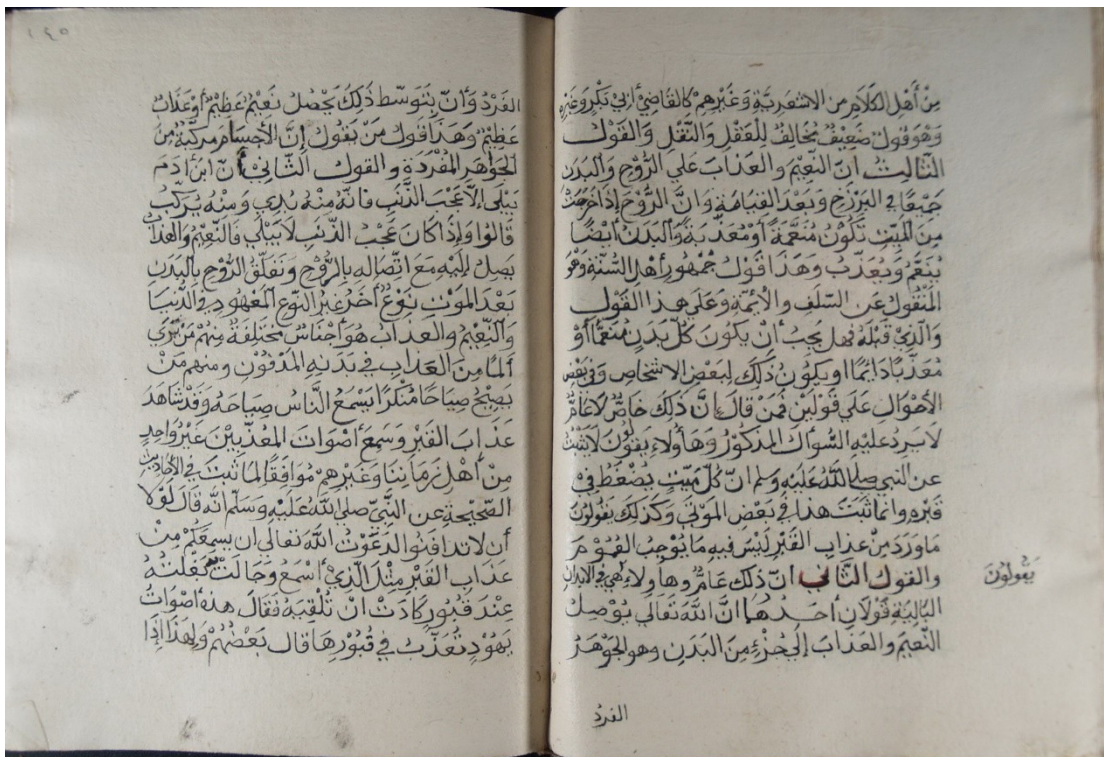 مِنْ أَهْلِ الكَلَامِ مِنَ الاشْعَرِيَّةِ وَغَيْرِهِمْ كَالقَاضِي أَبِي بَكْرٍ وَغَيْرِهِ
وَهُوَ قَوْلٌ ضَعِيفٌ مُخَالِفٌ لِلْعَقْلِ وَالنَّقْلِ وَالقَوْلُ
الثَّالِثُ انَّ النَّعِيمَ وَالعَذَابَ عَلَى الرُّوحِ وَالبَدَنِ
جَمِيعًا فِي البَرْزَخِ وَبَعْدَ القِيَامَةِ وَانَّ الرُّوحَ إِذَا خَرَجَتْ
مِنَ المَيِّتِ تَكُونُ مُنَعَّمَةً أَوْ مُعَذَّبَةً وَالبَدَنُ أَيْضًا
يُنَعَّمُ وَيُعَذَّبُ وَهَذَا قَوْلُ جُمْهُورِ أَهْلِ السُّنَّةِ وَهُوَ
المَنْقُولُ عَنِ السَّلَفِ وَالأَئِمَّةِ وَعَلَى هَذَا القَوْلِ
وَالَّذِي قَبْلَهُ فَهَلْ يَجِبُ أَنْ يَكُونَ كُلُّ بَدَنٍ مُنَعَّمًا أَوْ
مُعَذَّبًا دَائِمًا او يَكُونُ ذَلِكَ لِبَعْضِ الاشْخَاصِ وَفِي بَعْضِ
الأَحْوَالِ عَلَى قَوْلَيْنِ فَمَنْ قَالَ إِنَّ ذَلِكَ خَاصٌّ لَا عَامٌّ
لَا يَرِدُ عَلَيْهِ السُّؤَالُ المَذْكُورُ وَهَاؤُلَاءِ يَقُولُونَ لَا يَثْبُتُ
عن النبي صلى اللَّهُ عَلَيْهِ وَسَلَّمَ انَّ كُلَّ مَيِّتٍ يُضْغَطُ فِي
قَبْرِهِ وَانمَا ثَبَتَ هَذَا فِي بَعْضِ المَوْتَى وَكَذَلِكَ يَقُولُونَ
مَا وَرَدَ مِنْ عَذَابِ القَبْرِ لَيْسَ فِيهِ مَا يُوجِبُ العُمُومَ
والقول الثَّانِي انَّ ذَلِكَ عَامٌّ وهاولاء فِي الابدان
يَقُولُونَ
البَالِيَةِ قَوْلَانِ أَحَدُهُمَا انَّ اللَّهَ تَعَالَى يُوصِلُ
النَّعِيمَ وَالعَذَابَ إِلَى جُزْءٍ مِنَ البَدَنِ وَهُوَ الجَوْهَرُ
الفَرْدُ
١٤٥
الفَرْدُ وَأَنْ يَتَوَسَّطَ ذَلِكَ يَحْصُلُ نَعِيمٌ عَظِيمٌ أَوْ عَذَابٌ
عَظِيمٌ وَهَذَا قَوْلُ مَنْ يَقُولُ إِنَّ الأَجْسَامَ مُرَكَّبَةٌ مِنَ
الجَوَاهِرِ المُفْرَدَةِ وَالقول الثَّانِي أَنَّ ابْنَ أَدَمَ
يَبْلَى إِلَّا عَجْبَ الذَّنَبِ فَانَّهُ مِنْهُ بُدِئَ وَمِنْهُ يُرَكَّبُ
قَالُوا وَإِذَا كَانَ عَجْبُ الذَّنَبِ لَا يَبْلَى فَالنَّعِيمُ وَالعَذَابُ
يَصِلُ إِلَيْهِ مَعَ اتِّصَالِهِ بِالرُّوحِ وَتَعَلُّقُ الرُّوحِ بِالبَدَنِ
بَعْدَ المَوْتِ نَوْعٌ أَخَرُ غَيْرُ النَّوْعِ المَعْهُودِ فِي الدُّنْيَا
وَالنَّعِيمُ وَالعَذَابُ هُوَ أَجْنَاسٌ مُخْتَلِفَةٌ مِنْهُمْ مَنْ يَرَى
أَلَمًا مِنَ العَذَابِ فِي بَدَنِهِ المَدْفُونِ وَمِنْهُمْ مَنْ
يَصِيحُ صِيَاحًا مُنْكَرًا يَسْمَعُ النَّاسُ صِيَاحَهُ وَقَدْ شَاهَدَ
عَذَابَ القَبْرِ وَسَمِعَ أَصْوَاتَ المُعَذَّبِينَ غَيْرُ وَاحِدٍ
مِنْ أَهْلِ زَمَانِنَا وَغَيْرِهِمْ مُوَافِقًا لِمَا ثَبَتَ فِي الأَحَادِيثِ
الصَّحِيحَةِ عَنِ النَّبِيِّ صَلَّى اللَّهُ عَلَيْهِ وَسَلَّمَ انَّهُ قَالَ لَوْلَا
أَن لَا تدافَنُوا لَدَعَوْتُ اللَّهَ تَعَالَى ان يُسْمِعَكُمْ مِنْ
عَذَابِ القَبْرِ مِثْلَ الَّذِي أَسْمَعُ وَجَالَتْ بِهِ بَغْلَتُهُ
عِنْدَ قُبُورٍ كَادَتْ انْ تُلْقِيَهُ فَقَالَ هَذِهِ أَصْوَاتُ
يَهُودٍ تُعَذَّبُ فِي قُبُورِهَا قَالَ بَعْضُهُمْ وَلِهَذَا إِذَا